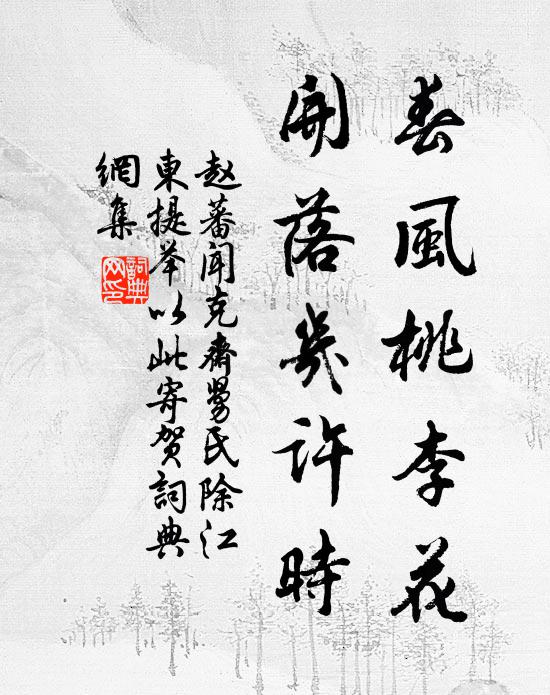 春風桃李花
開落幾許時
赵蕃聞克齋舅氏除江
東提举以此寄贺詞典
網集
詞典網印